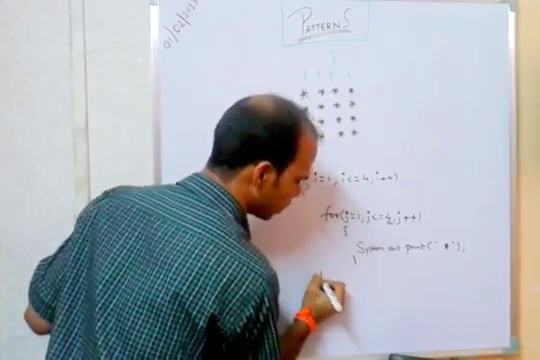 PATTERNS
* * * *
* * * *
* * *
* * *
i=1, i<=4, i++)
for(j=1, j<=4, j++)
{
System.out.print(" * ");
}